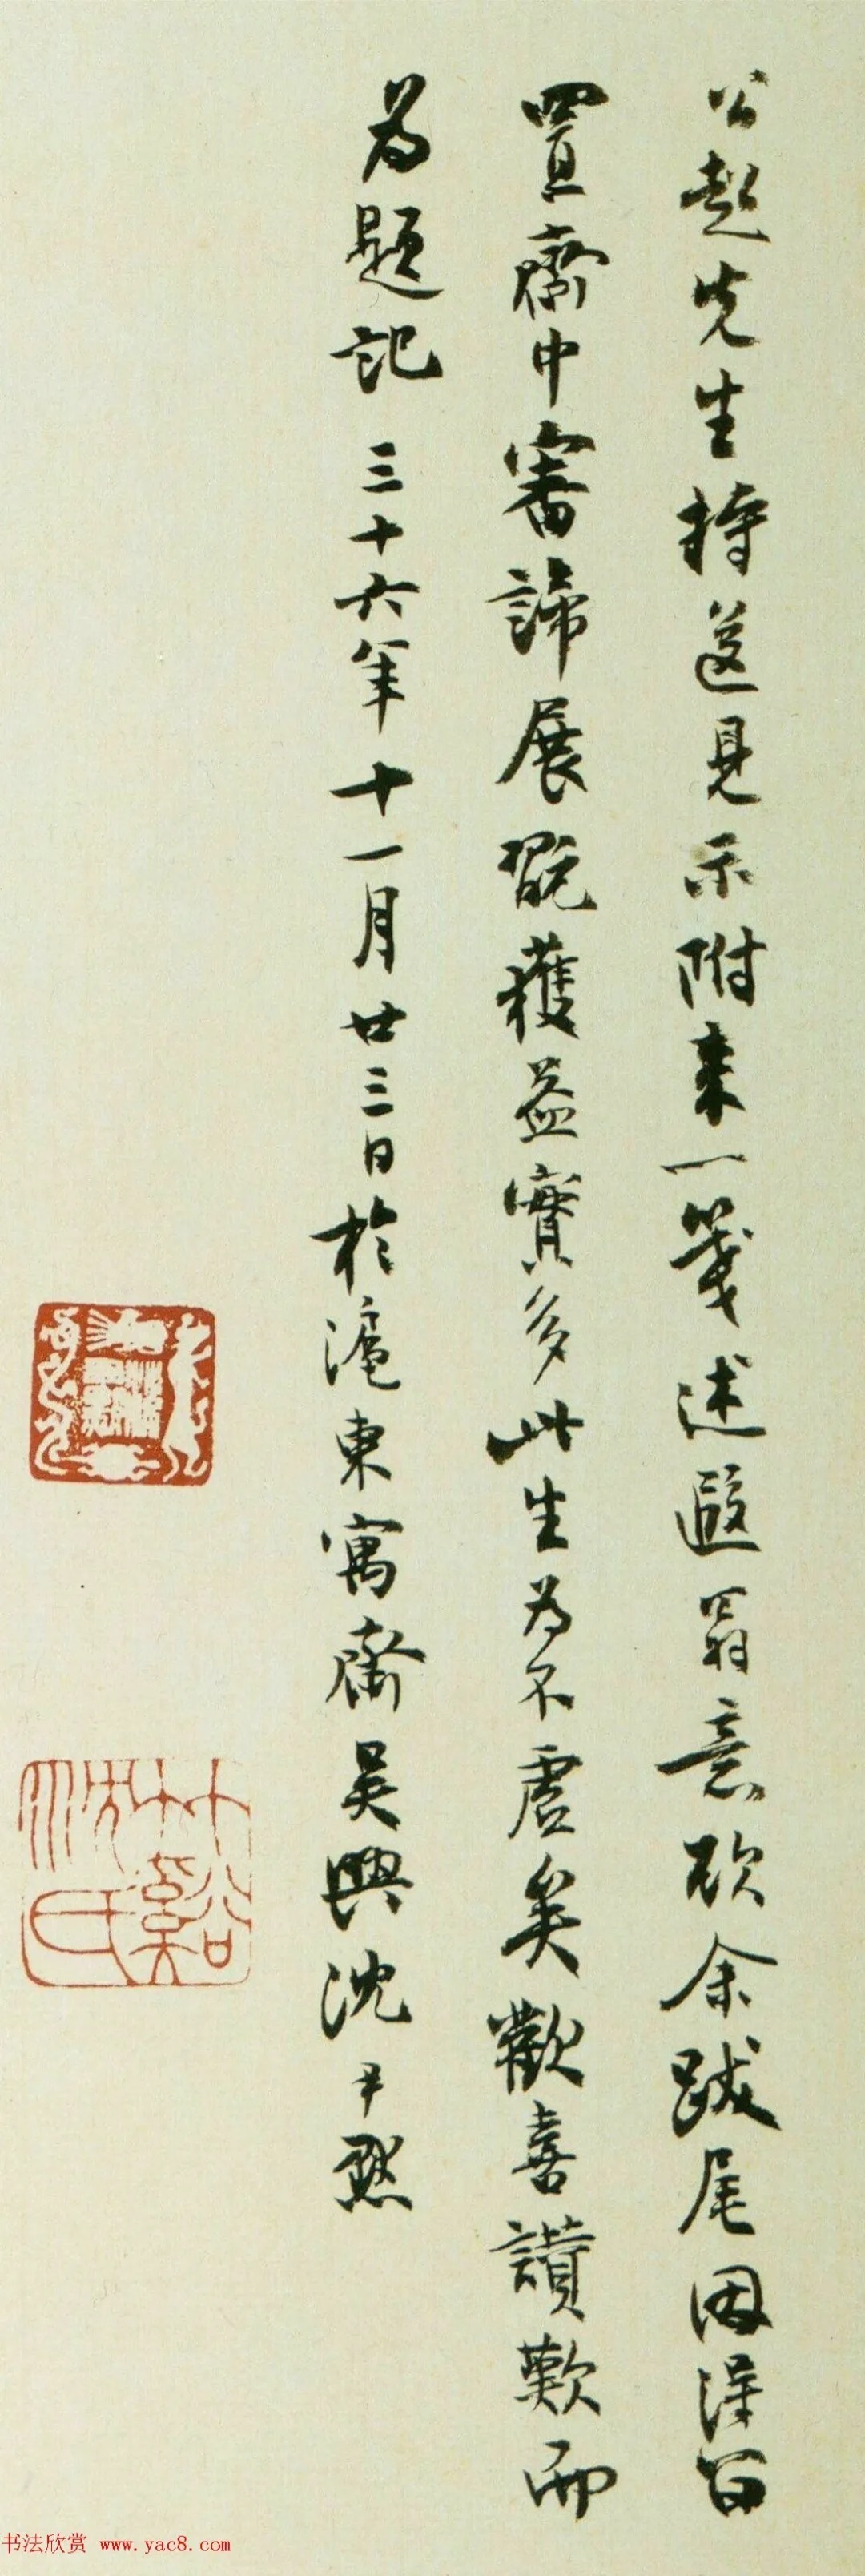 公起先生持迻見示附來一箋述遐翁意欲余跋尾因得留
置齋中審諦展翫獲益實多此生為不虛矣歡喜讚歎而
為題記 三十六年十一月廿三日於滬東寓齋吳興沈尹默
竹谿沈氏
书法欣赏 www.yac8.com